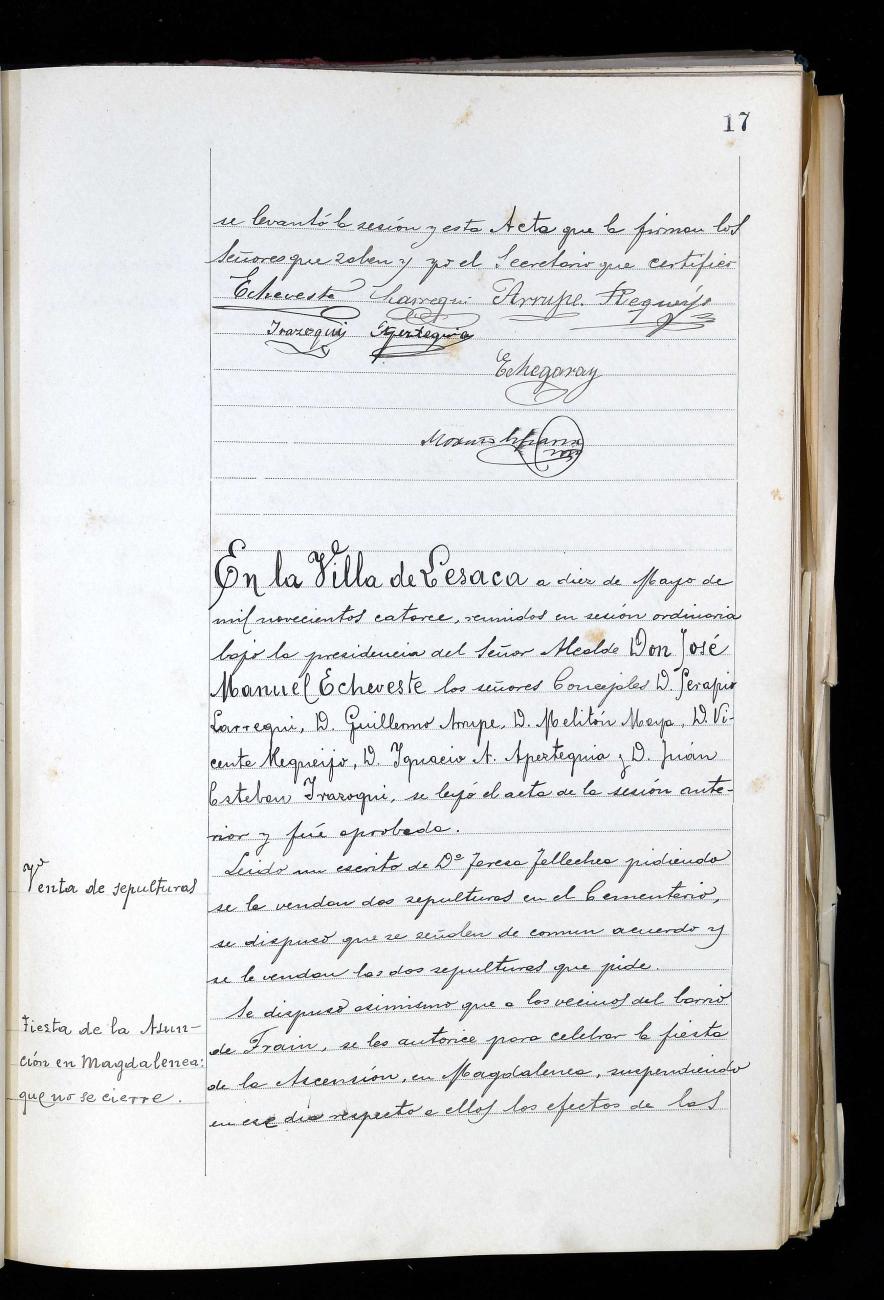 17
se levantó la sesión y esta Acta que la firman los
Señores que saben y yo el Secretario que certifico
Echeveste Larregui Arrupe Requeijo
Irazoqui Aperteguia
Echegaray
En la Villa de Lesaca a diez de Mayo de
mil novecientos catorce, reunidos en sesión ordinaria
bajo la presidencia del Señor Alcalde Don José
Manuel Echeveste los señores Concejales D. Serapio
Larregui, D. Guillermo Arrupe, D. Melitón Maya, D. Vi-
cente Requeijo, D. Ignacio A. Aperteguia y D. Juán
Esteban Irazoqui, se leyó el acta de la sesión ante-
rior y fué aprobada.
Venta de sepulturas
Leido un escrito de Dª Teresa Tellechea pidiendo
se le vendan dos sepulturas en el Cementerio,
se dispuso que se señalen de comun acuerdo y
se le vendan las dos sepulturas que pide.
Fiesta de la Asun-
ción en Magdalenea:
que no se cierre.
Se dispuso asimismo que a los vecinos del barrio
de Frain, se les autorice para celebrar la fiesta
de la Ascensión, en Magdalenea, suspendiendo
en ese dia respecto a ellos los efectos de las